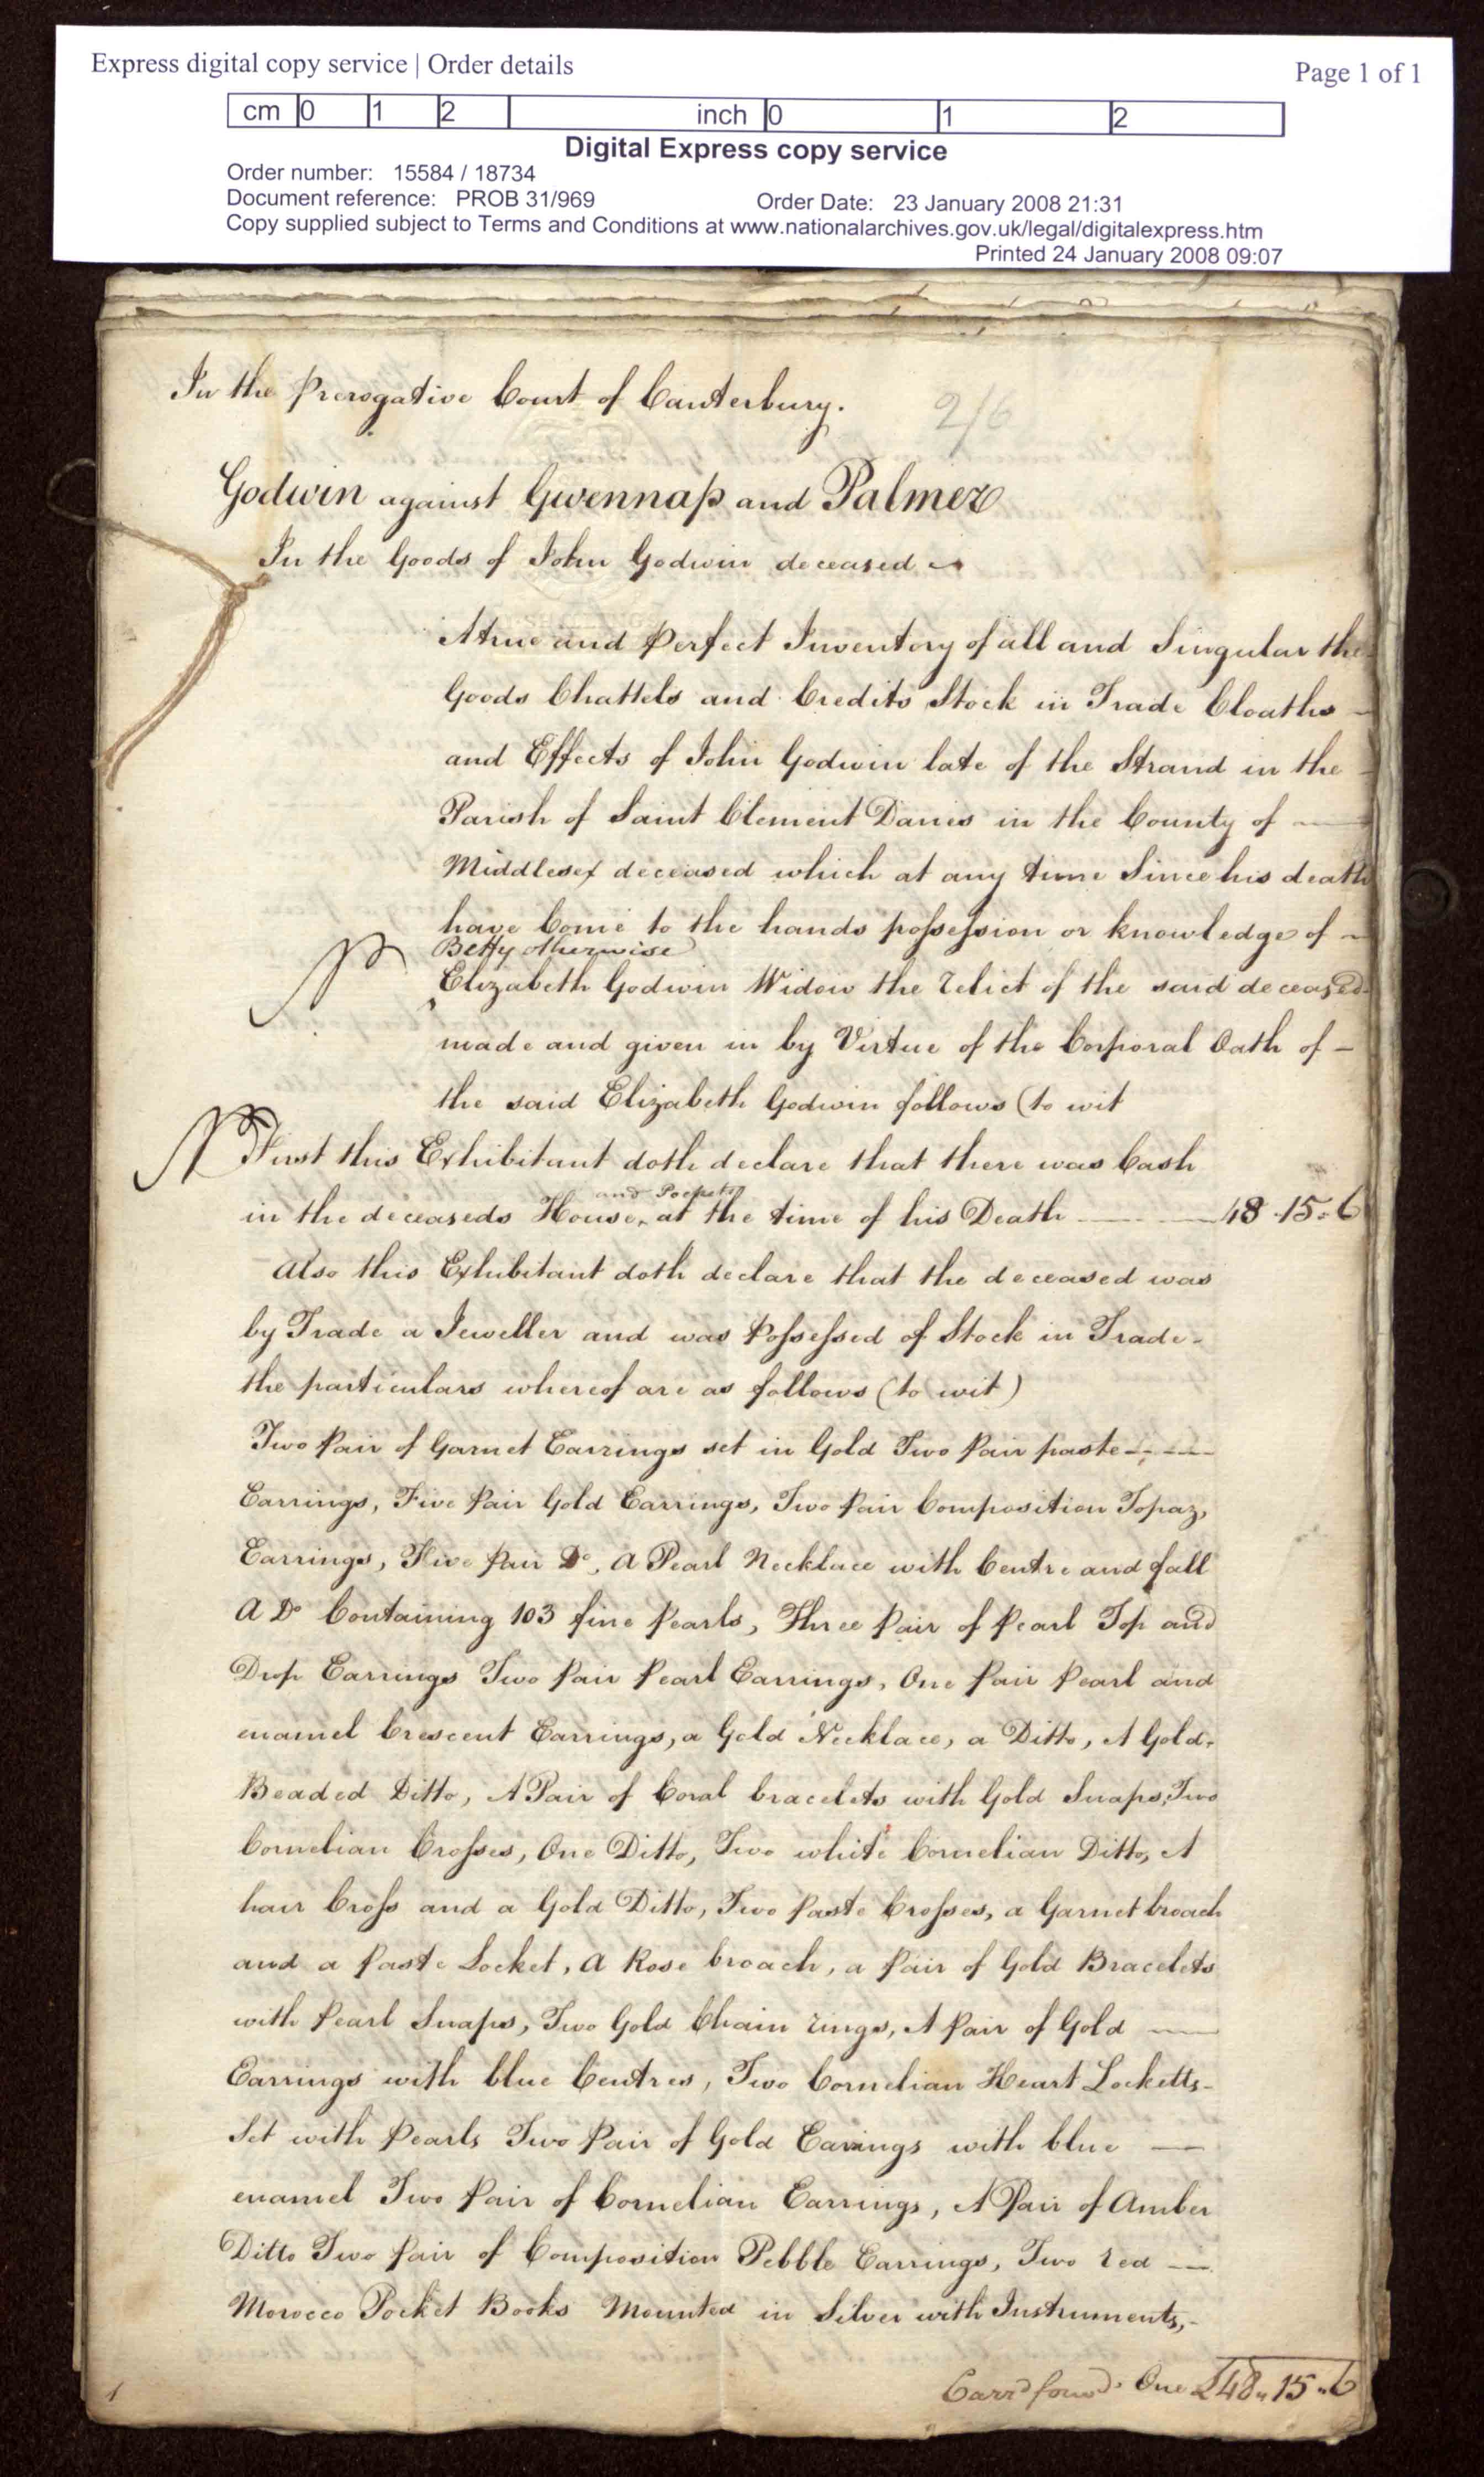 Express digital copy service | Order details
Page 1 of 1
cm 0 1 2 inch 0 1 2
Digital Express copy service
Order number: 15584 / 18734
Document reference: PROB 31/969 Order Date: 23 January 2008 21:31
Copy supplied subject to Terms and Conditions at www.nationalarchives.gov.uk/legal/digitalexpress.htm
Printed 24 January 2008 09:07
In the Prerogative Court of Canterbury.
2/6
Godwin against Gwennap and Palmer
In the Goods of John Godwin deceased
A true and Perfect Inventory of all and Singular the
Goods Chattels and Credits Stock in Trade Cloaths
and Effects of John Godwin late of the Strand in the
Parish of Saint Clement Danes in the County of
Middlesex deceased which at any time Since his death
have Come to the hands possession or knowledge of
Betty otherwise
Elizabeth Godwin Widow the relict of the said deceased
made and given in by Virtue of the Corporal Oath of
the said Elizabeth Godwin follows (to wit
First this Exhibitant doth declare that there was Cash
and Pockets
in the deceaseds House, at the time of his Death 48 . 15 . 6
Also this Exhibitant doth declare that the deceased was
by Trade a Jeweller and was Possessed of Stock in Trade
the particulars whereof are as follows (to wit)
Two Pair of Garnet Earrings set in Gold Two Pair paste
Earrings, Five Pair Gold Earrings, Two Pair Composition Topaz,
Earrings, Five Pair Do, A Pearl Necklace with Centre and fall
A Do Containing 103 fine Pearls, Three Pair of Pearl Top and
Drop Earrings Two Pair Pearl Earrings, One Pair Pearl and
enamel Crescent Earrings, a Gold Necklace, a Ditto, A Gold
Beaded Ditto, A Pair of Coral bracelets with Gold Snaps, Two
Cornelian Crosses, One Ditto, Two white Cornelian Ditto, A
hair Cross and a Gold Ditto, Two Paste Crosses, a Garnet broach
and a Paste Locket, A Rose broach, a Pair of Gold Bracelets
with Pearl Snaps, Two Gold Chain rings, A Pair of Gold
Earrings with blue Centres, Two Cornelian Heart Locketts
Set with Pearls Two Pair of Gold Earings with blue
enamel Two Pair of Cornelian Earrings, A Pair of Amber
Ditto Two Pair of Composition Pebble Earrings, Two red
Morocco Pocket Books Mounted in Silver with Instruments,
Carrd forwd One £48 " 15 " 6
1